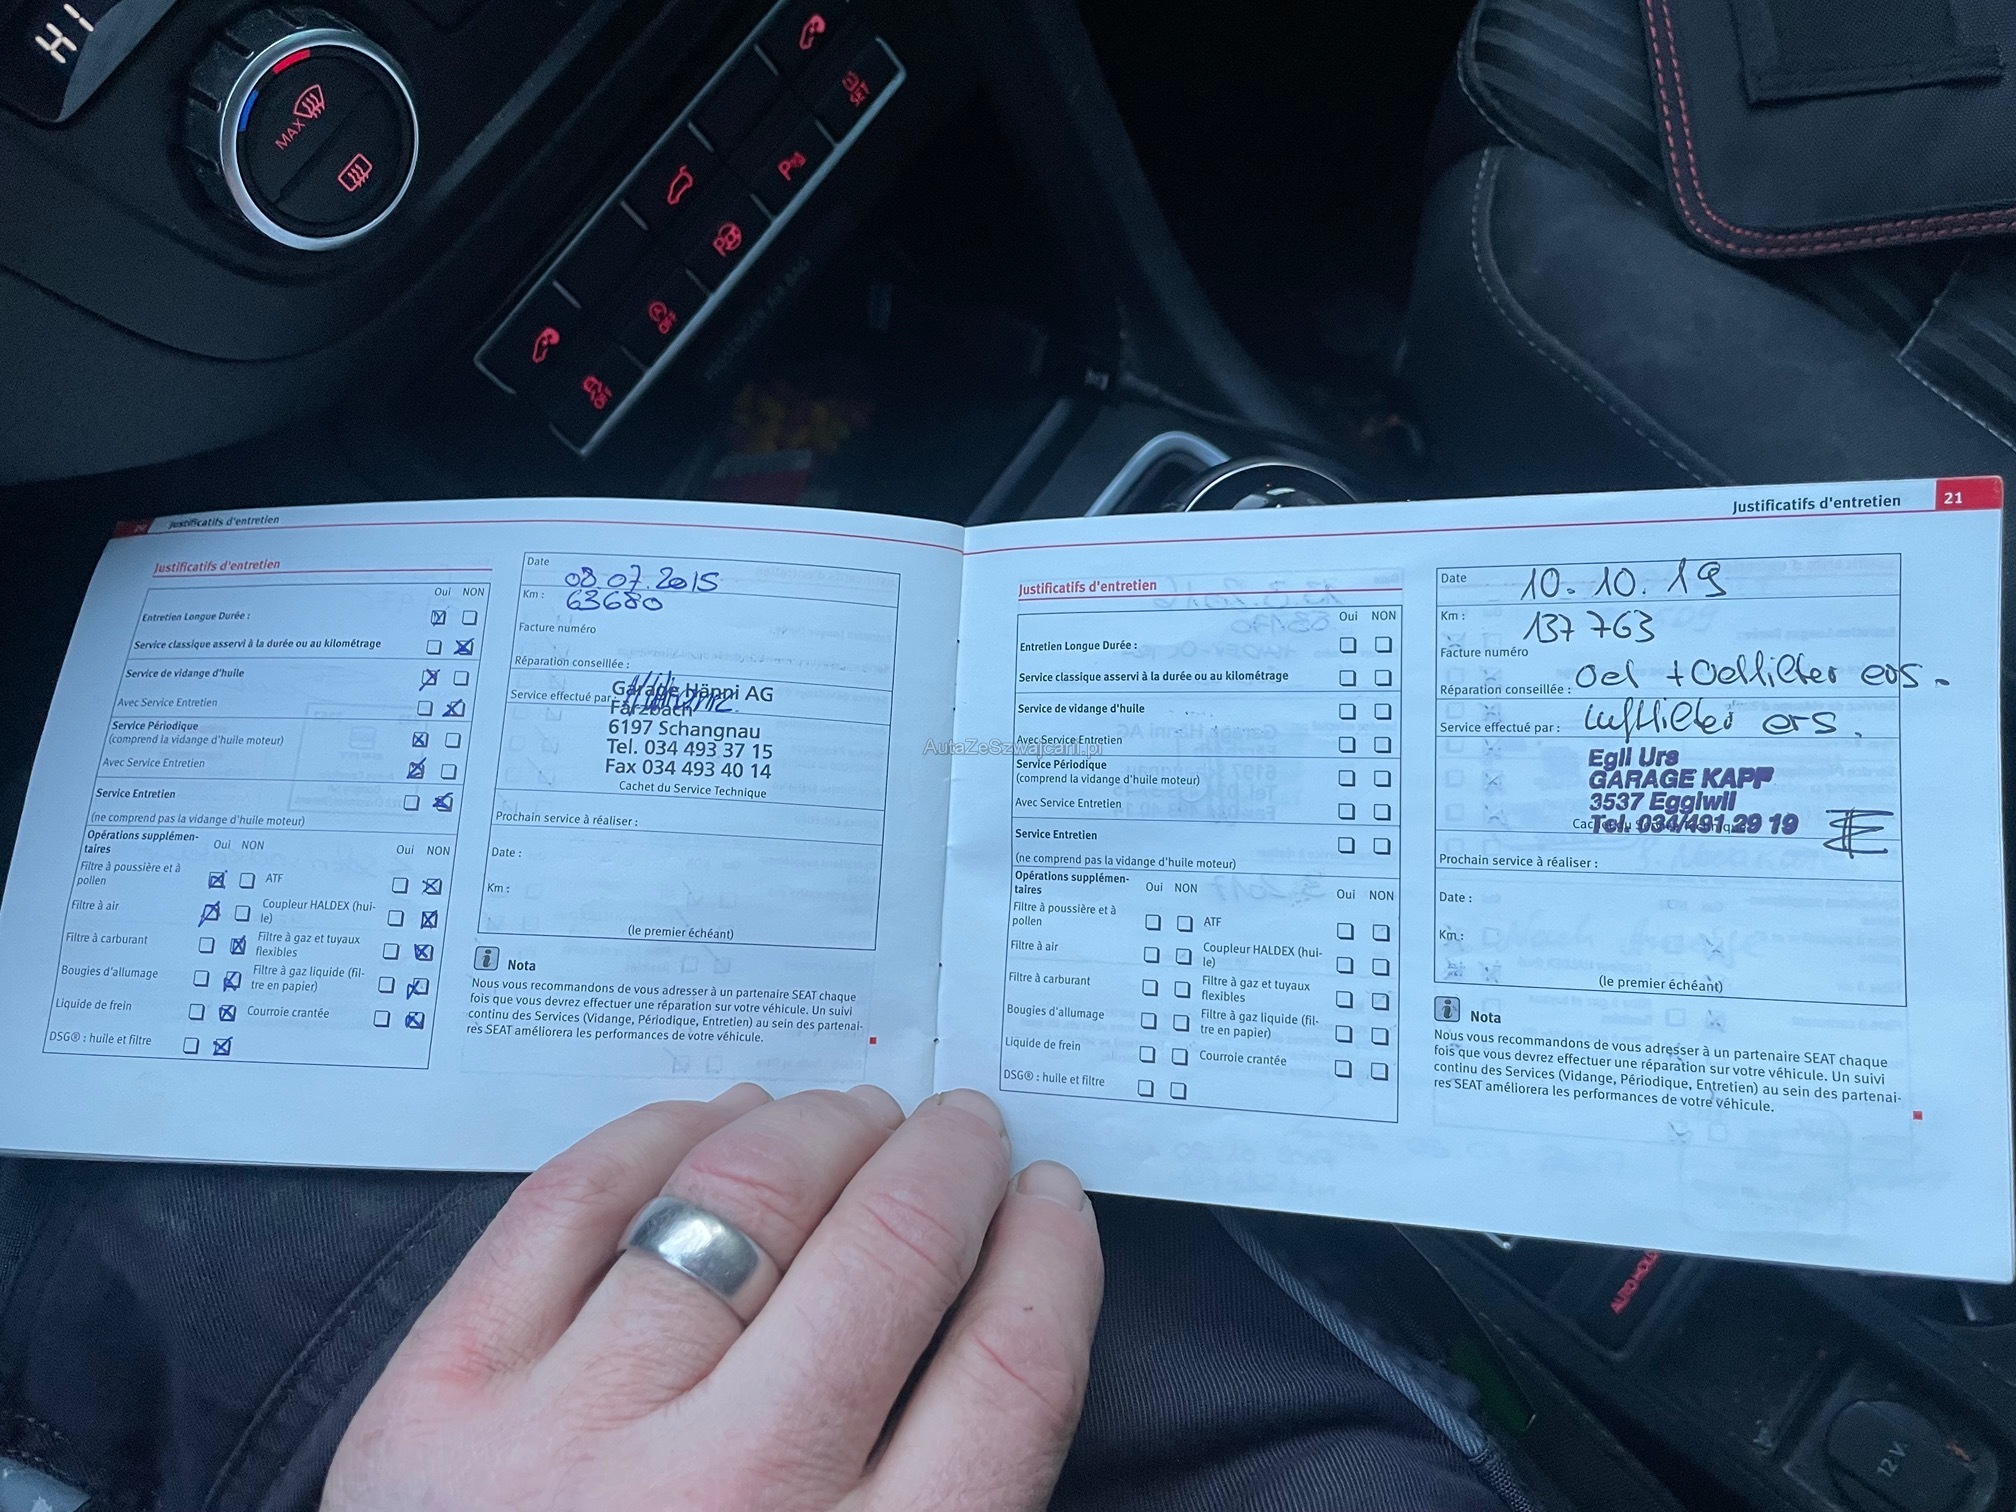 HI
MAX
SET
P
OFF
PASSENGER AIR BAG
20 Justificatifs d'entretien
Justificatifs d'entretien
Oui NON
Entretien Longue Durée :
Service classique asservi à la durée ou au kilométrage
Service de vidange d'huile
Avec Service Entretien
Service Périodique
(comprend la vidange d'huile moteur)
Avec Service Entretien
Service Entretien
(ne comprend pas la vidange d'huile moteur)
Opérations supplémen-
taires
Oui NON
Oui NON
Filtre à poussière et à
pollen
ATF
Filtre à air
Coupleur HALDEX (hui-
le)
Filtre à carburant
Filtre à gaz et tuyaux
flexibles
Bougies d'allumage
Filtre à gaz liquide (fil-
tre en papier)
Liquide de frein
Courroie crantée
DSG® : huile et filtre
Date 08.07.2015
Km : 63680
Facture numéro
Réparation conseillée :
Service effectué par :
Garage Hänni AG
Farzbach
6197 Schangnau
Tel. 034 493 37 15
Fax 034 493 40 14
Cachet du Service Technique
Prochain service à réaliser :
Date :
Km :
(le premier échéant)
i Nota
Nous vous recommandons de vous adresser à un partenaire SEAT chaque
fois que vous devrez effectuer une réparation sur votre véhicule. Un suivi
continu des Services (Vidange, Périodique, Entretien) au sein des partenai-
res SEAT améliorera les performances de votre véhicule.
Justificatifs d'entretien 21
Justificatifs d'entretien
Oui NON
Entretien Longue Durée :
Service classique asservi à la durée ou au kilométrage
Service de vidange d'huile
Avec Service Entretien
Service Périodique
(comprend la vidange d'huile moteur)
Avec Service Entretien
Service Entretien
(ne comprend pas la vidange d'huile moteur)
Opérations supplémen-
taires
Oui NON
Oui NON
Filtre à poussière et à
pollen
ATF
Filtre à air
Coupleur HALDEX (hui-
le)
Filtre à carburant
Filtre à gaz et tuyaux
flexibles
Bougies d'allumage
Filtre à gaz liquide (fil-
tre en papier)
Liquide de frein
Courroie crantée
DSG® : huile et filtre
Date 10.10.19
Km : 137763
Facture numéro
Réparation conseillée : Oel + Oelfilter ers.
Service effectué par : Luftfilter ers.
Egli Urs
GARAGE KAPF
3537 Eggiwil
Tel. 034/491 29 19
Prochain service à réaliser :
Date :
Km :
(le premier échéant)
i Nota
Nous vous recommandons de vous adresser à un partenaire SEAT chaque
fois que vous devrez effectuer une réparation sur votre véhicule. Un suivi
continu des Services (Vidange, Périodique, Entretien) au sein des partenai-
res SEAT améliorera les performances de votre véhicule.
AutaZeSzwajcarii.pl
AUTO HOLD
12V